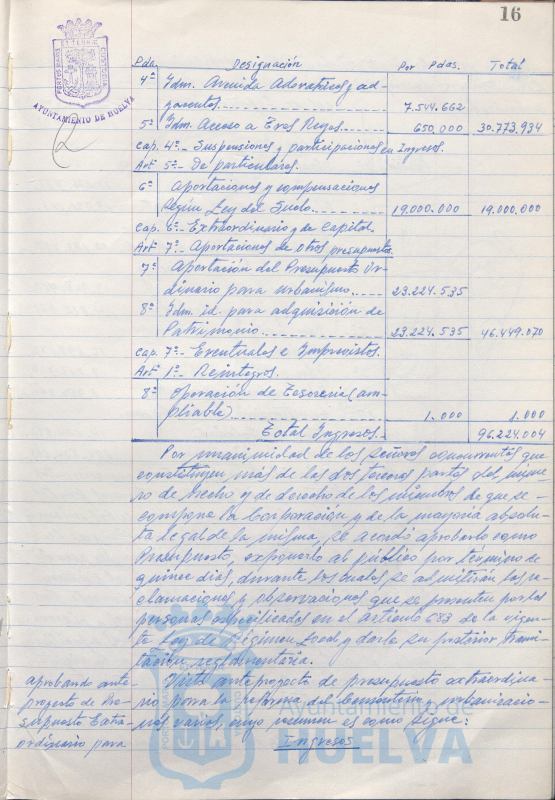 16
PORTUS MARIS ET TERRAE CUSTODIA
AYUNTAMIENTO DE HUELVA
2
Pda. Designación Por Pdas. Total
4ª Idm. Avenida Adoratrices y ad-
yacentes. 7.544.662
5ª Idm. Acceso a Tres Reyes. 650.000 30.773.934
Cap. 4º.- Suspensiones y participaciones en Ingresos.
Art 5º- De particulares.
6ª Aportaciones y compensaciones
según Ley del Suelo. 19.000.000 19.000.000
Cap. 6º- Extraordinario y de Capital.
Art 7º- Aportaciones de otros presupuestos.
7ª Aportación del Presupuesto Or-
dinario para urbanismo. 23.224.535
8ª Idm. id. para adquisición de
Patrimonio. 23.224.535 46.449.070
Cap. 7º- Eventuales e Imprevistos.
Art 1º- Reintegros.
8ª Operación de Tesorería (am-
pliable) 1.000 1.000
Total Ingresos.- 96.224.004
Por unanimidad de los señores concurrentes que
constituyen más de las dos terceras partes del núme-
ro de hecho y de derecho de los miembros de que se
compone la Corporación y de la mayoría absolu-
ta legal de la misma, se acordó aprobarlo como
Presupuesto, exponerlo al público por término de
quince días, durante los cuales se admitirán las re-
clamaciones y observaciones que se presenten por las
personas especificadas en el artículo 683 de la vigen-
te Ley de Régimen Local y darle su posterior trami-
tación reglamentaria.
aprobando ante-
proyecto de Pre-
supuesto Extra-
ordinario para
Visto anteproyecto de presupuesto extraordina-
rio para la reforma del Cementerio, urbanizacio-
nes varias, cuyo resumen es como sigue:
Ingresos
Ayuntamiento de
HUELVA